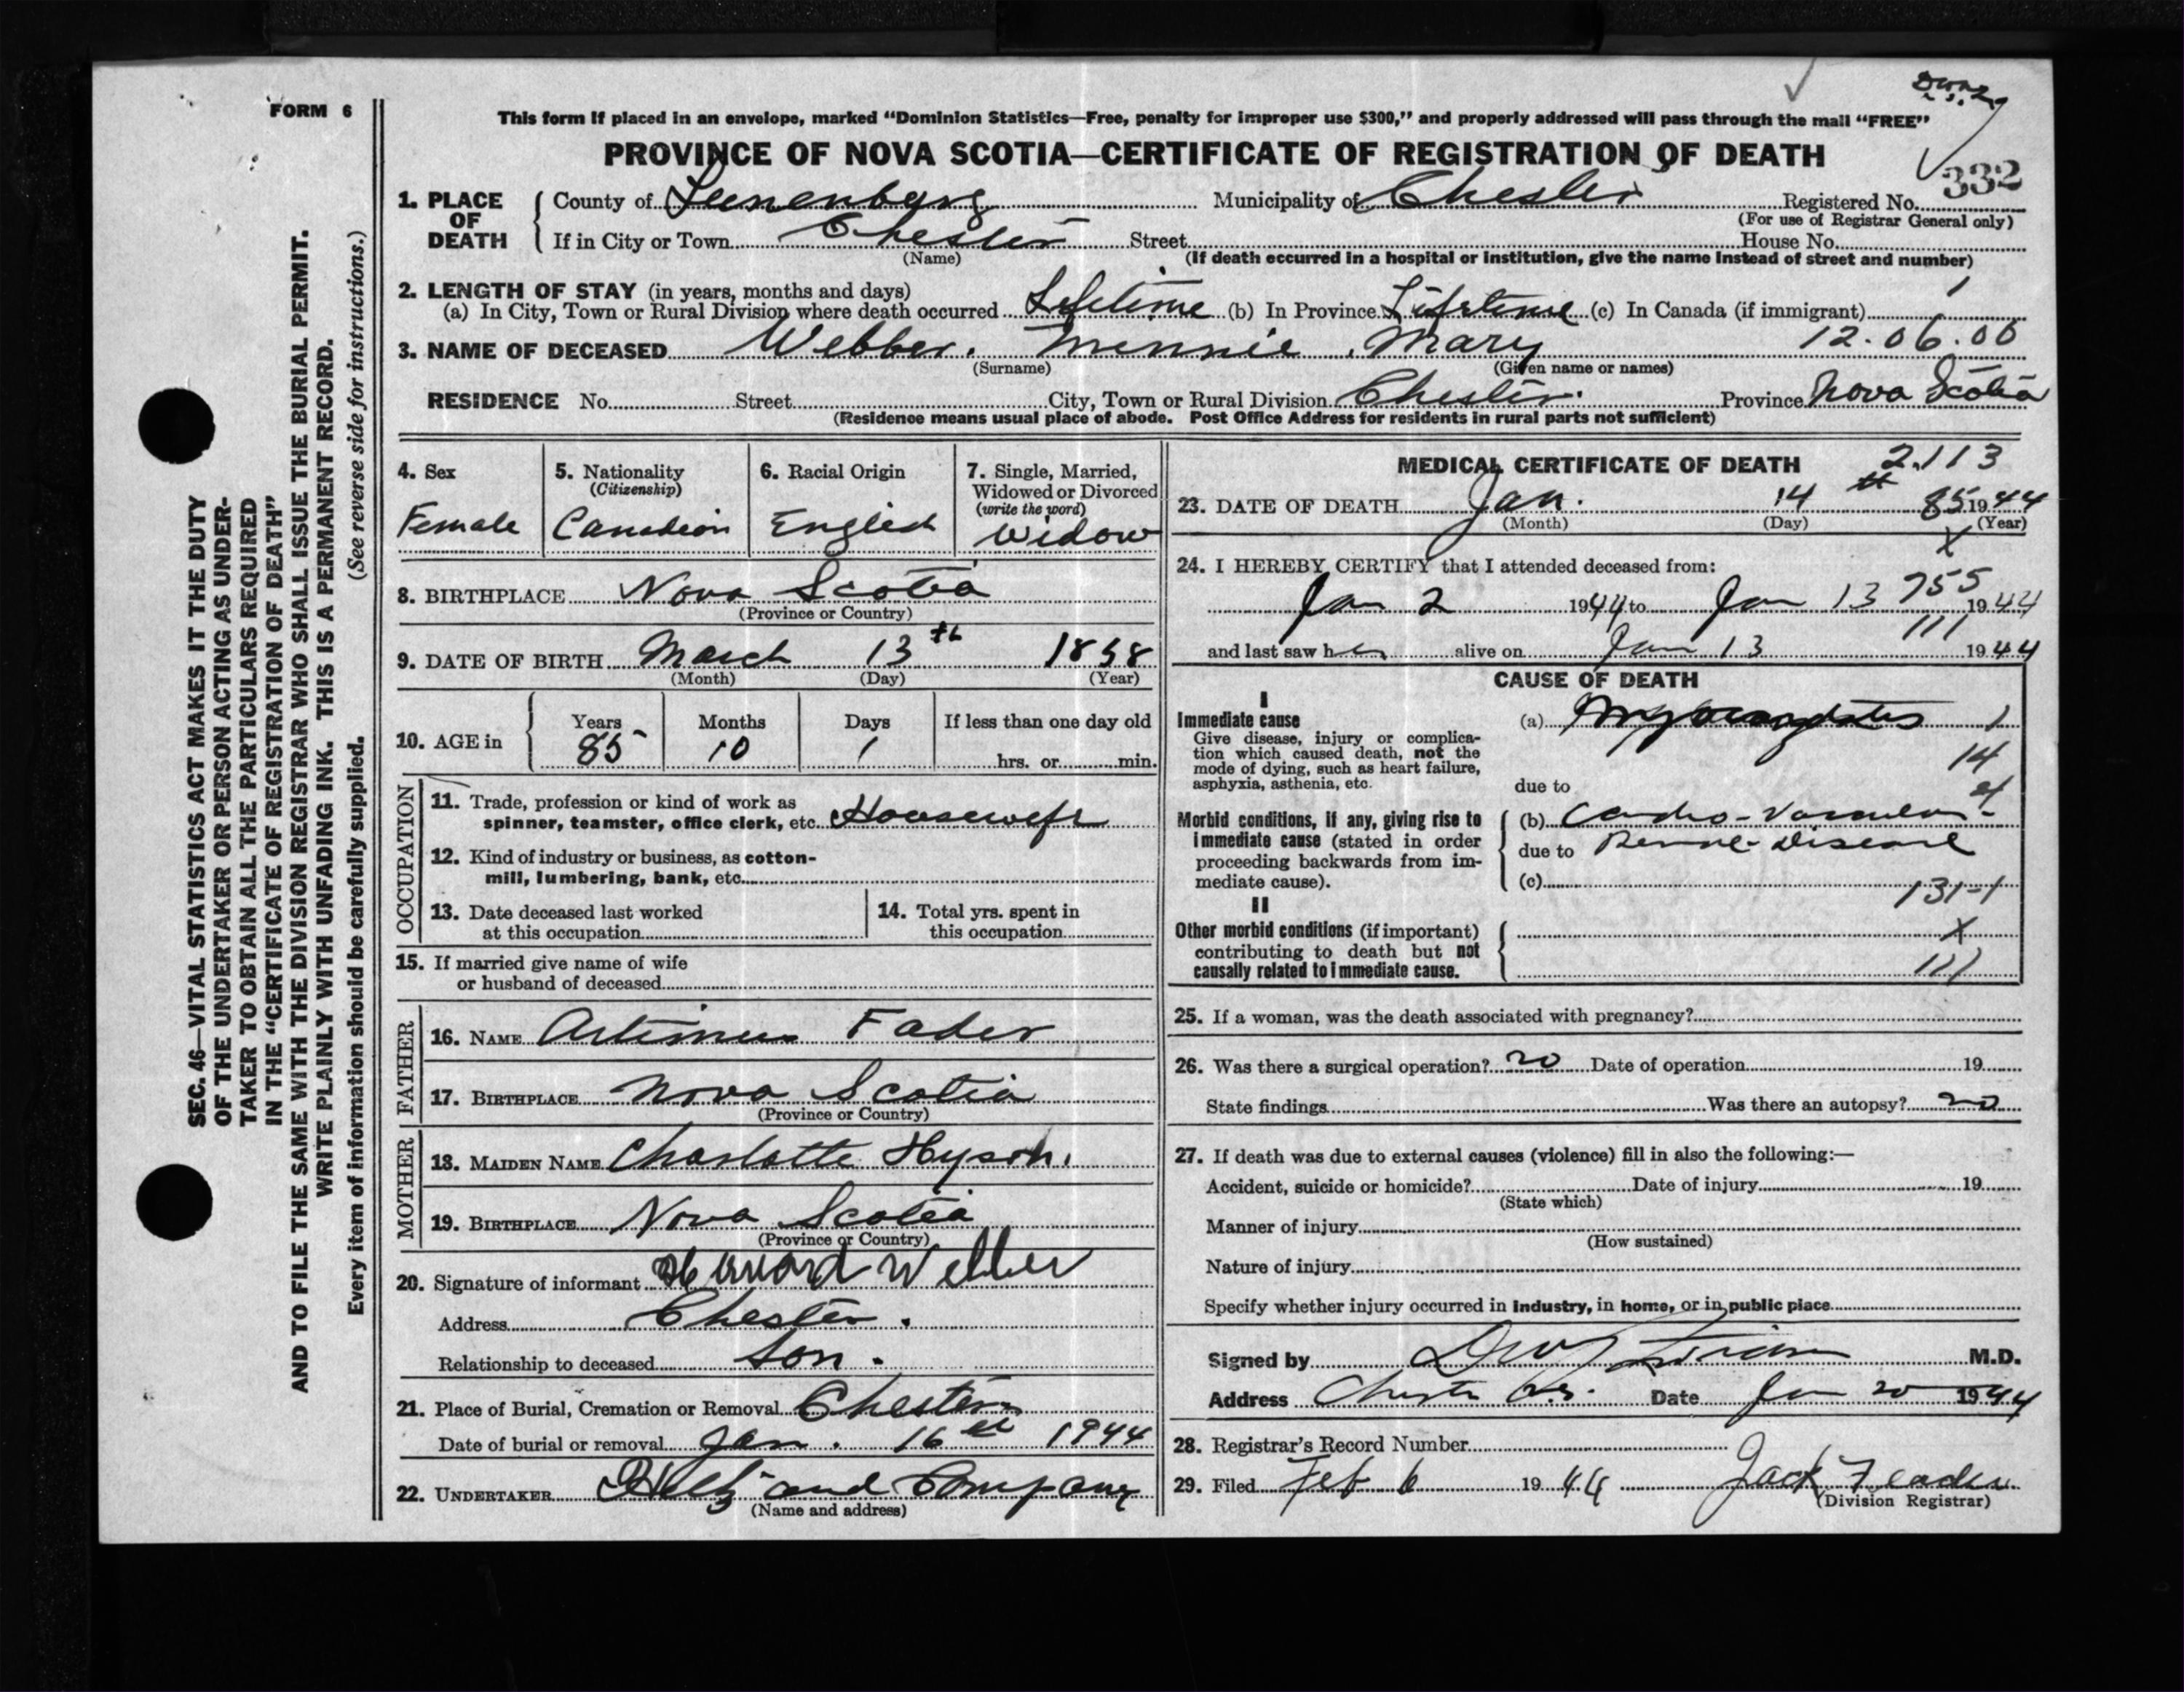 FORM 6
SEC. 46—VITAL STATISTICS ACT MAKES IT THE DUTY
OF THE UNDERTAKER OR PERSON ACTING AS UNDER-
TAKER TO OBTAIN ALL THE PARTICULARS REQUIRED
IN THE "CERTIFICATE OF REGISTRATION OF DEATH"
AND TO FILE THE SAME WITH THE DIVISION REGISTRAR WHO SHALL ISSUE THE BURIAL PERMIT.
WRITE PLAINLY WITH UNFADING INK. THIS IS A PERMANENT RECORD.
Every item of information should be carefully supplied. (See reverse side for instructions.)
This form if placed in an envelope, marked "Dominion Statistics—Free, penalty for improper use $300," and properly addressed will pass through the mail "FREE"
PROVINCE OF NOVA SCOTIA—CERTIFICATE OF REGISTRATION OF DEATH
332
1. PLACE OF DEATH
County of Lunenburg Municipality of Chester Registered No.
(For use of Registrar General only)
If in City or Town Chester Street House No.
(Name) (If death occurred in a hospital or institution, give the name instead of street and number)
2. LENGTH OF STAY (in years, months and days)
(a) In City, Town or Rural Division where death occurred Lifetime (b) In Province Lifetime (c) In Canada (if immigrant)
3. NAME OF DECEASED Webber. Minnie Mary 12.06.06
(Surname) (Given name or names)
RESIDENCE No. Street City, Town or Rural Division Chester. Province Nova Scotia
(Residence means usual place of abode. Post Office Address for residents in rural parts not sufficient)
4. Sex
Female
5. Nationality
(Citizenship)
Canadian
6. Racial Origin
English
7. Single, Married,
Widowed or Divorced
(write the word)
Widow
8. BIRTHPLACE Nova Scotia
(Province or Country)
9. DATE OF BIRTH March 13th 1858
(Month) (Day) (Year)
10. AGE in
Years Months Days If less than one day old
85 10 1 hrs. or min.
OCCUPATION
11. Trade, profession or kind of work as
spinner, teamster, office clerk, etc. Housewife
12. Kind of industry or business, as cotton-
mill, lumbering, bank, etc.
13. Date deceased last worked
at this occupation
14. Total yrs. spent in
this occupation
15. If married give name of wife
or husband of deceased
FATHER
16. NAME Artimus Fader
17. BIRTHPLACE Nova Scotia
(Province or Country)
MOTHER
18. MAIDEN NAME Charlotte Hyson.
19. BIRTHPLACE Nova Scotia
(Province or Country)
20. Signature of informant Webber
Address Chester.
Relationship to deceased Son.
21. Place of Burial, Cremation or Removal Chester
Date of burial or removal Jan. 16th 1944
22. UNDERTAKER and Company
(Name and address)
MEDICAL CERTIFICATE OF DEATH 2.113
23. DATE OF DEATH Jan. 14th 85 1944
(Month) (Day) (Year)
X
24. I HEREBY CERTIFY that I attended deceased from:
755
Jan 2 1944 to Jan 13 1944
111
and last saw her alive on Jan 13 1944
CAUSE OF DEATH
I
Immediate cause
Give disease, injury or complica-
tion which caused death, not the
mode of dying, such as heart failure,
asphyxia, asthenia, etc.
(a) Myocarditis 1
14
due to
Morbid conditions, if any, giving rise to
immediate cause (stated in order
proceeding backwards from im-
mediate cause).
(b) Cardio-Vascular-
due to Renal-Disease
(c)
131-1
II
Other morbid conditions (if important)
contributing to death but not
causally related to immediate cause.
X
111
25. If a woman, was the death associated with pregnancy?
26. Was there a surgical operation? no Date of operation 19
State findings Was there an autopsy? no
27. If death was due to external causes (violence) fill in also the following:—
Accident, suicide or homicide? Date of injury 19
(State which)
Manner of injury
(How sustained)
Nature of injury
Specify whether injury occurred in industry, in home, or in public place
Signed by M.D.
Address Chester N.S. Date Jan 20 1944
28. Registrar's Record Number
29. Filed Feb 6 1944 Jack
(Division Registrar)